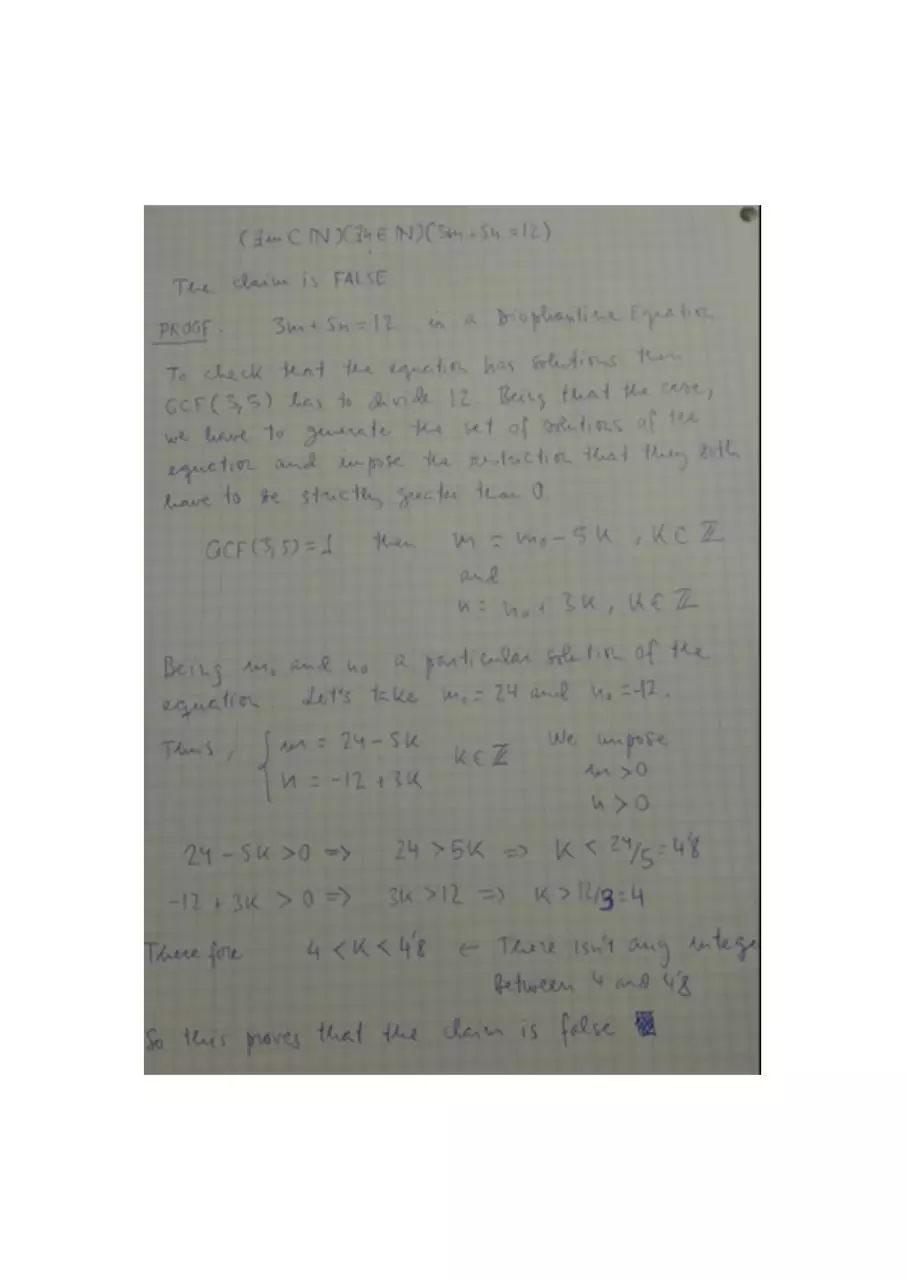 (∃m ∈ ℕ)(∃n ∈ ℕ)(3m + 5n = 12)
The claim is FALSE
PROOF. 3m + 5n = 12 is a Diophantine Equation
To check that the equation has solutions then
GCF(3,5) has to divide 12. Being that the case,
we have to generate the set of solutions of the
equation and impose the restriction that they both
have to be strictly greater than 0
GCF(3,5) = 1 then m = m₀ - 5K , K ∈ ℤ
and
n = n₀ + 3K , K ∈ ℤ
Being m₀ and n₀ a particular solution of the
equation. Let's take m₀ = 24 and n₀ = -12.
Thus, { m = 24 - 5K K ∈ ℤ We impose
n = -12 + 3K m > 0
n > 0
24 - 5K > 0 => 24 > 5K => K < 24/5 = 4'8
-12 + 3K > 0 => 3K > 12 => K > 12/3 = 4
Therefore 4 < K < 4'8 ← There isn't any intege
between 4 and 4'8
So this proves that the claim is false